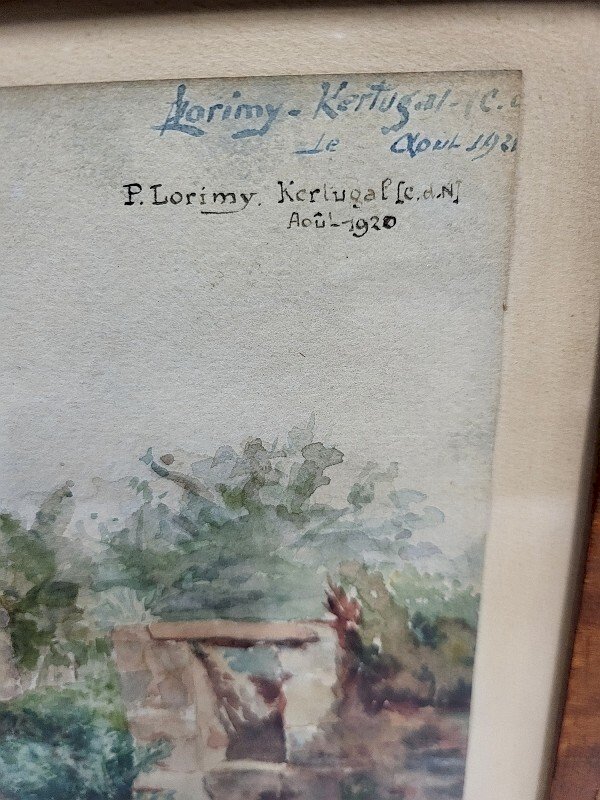 Lorimy - Kertugal - (C. d
Le Août 192
P. Lorimy. Kertugal [C.d.N]
Août-1920